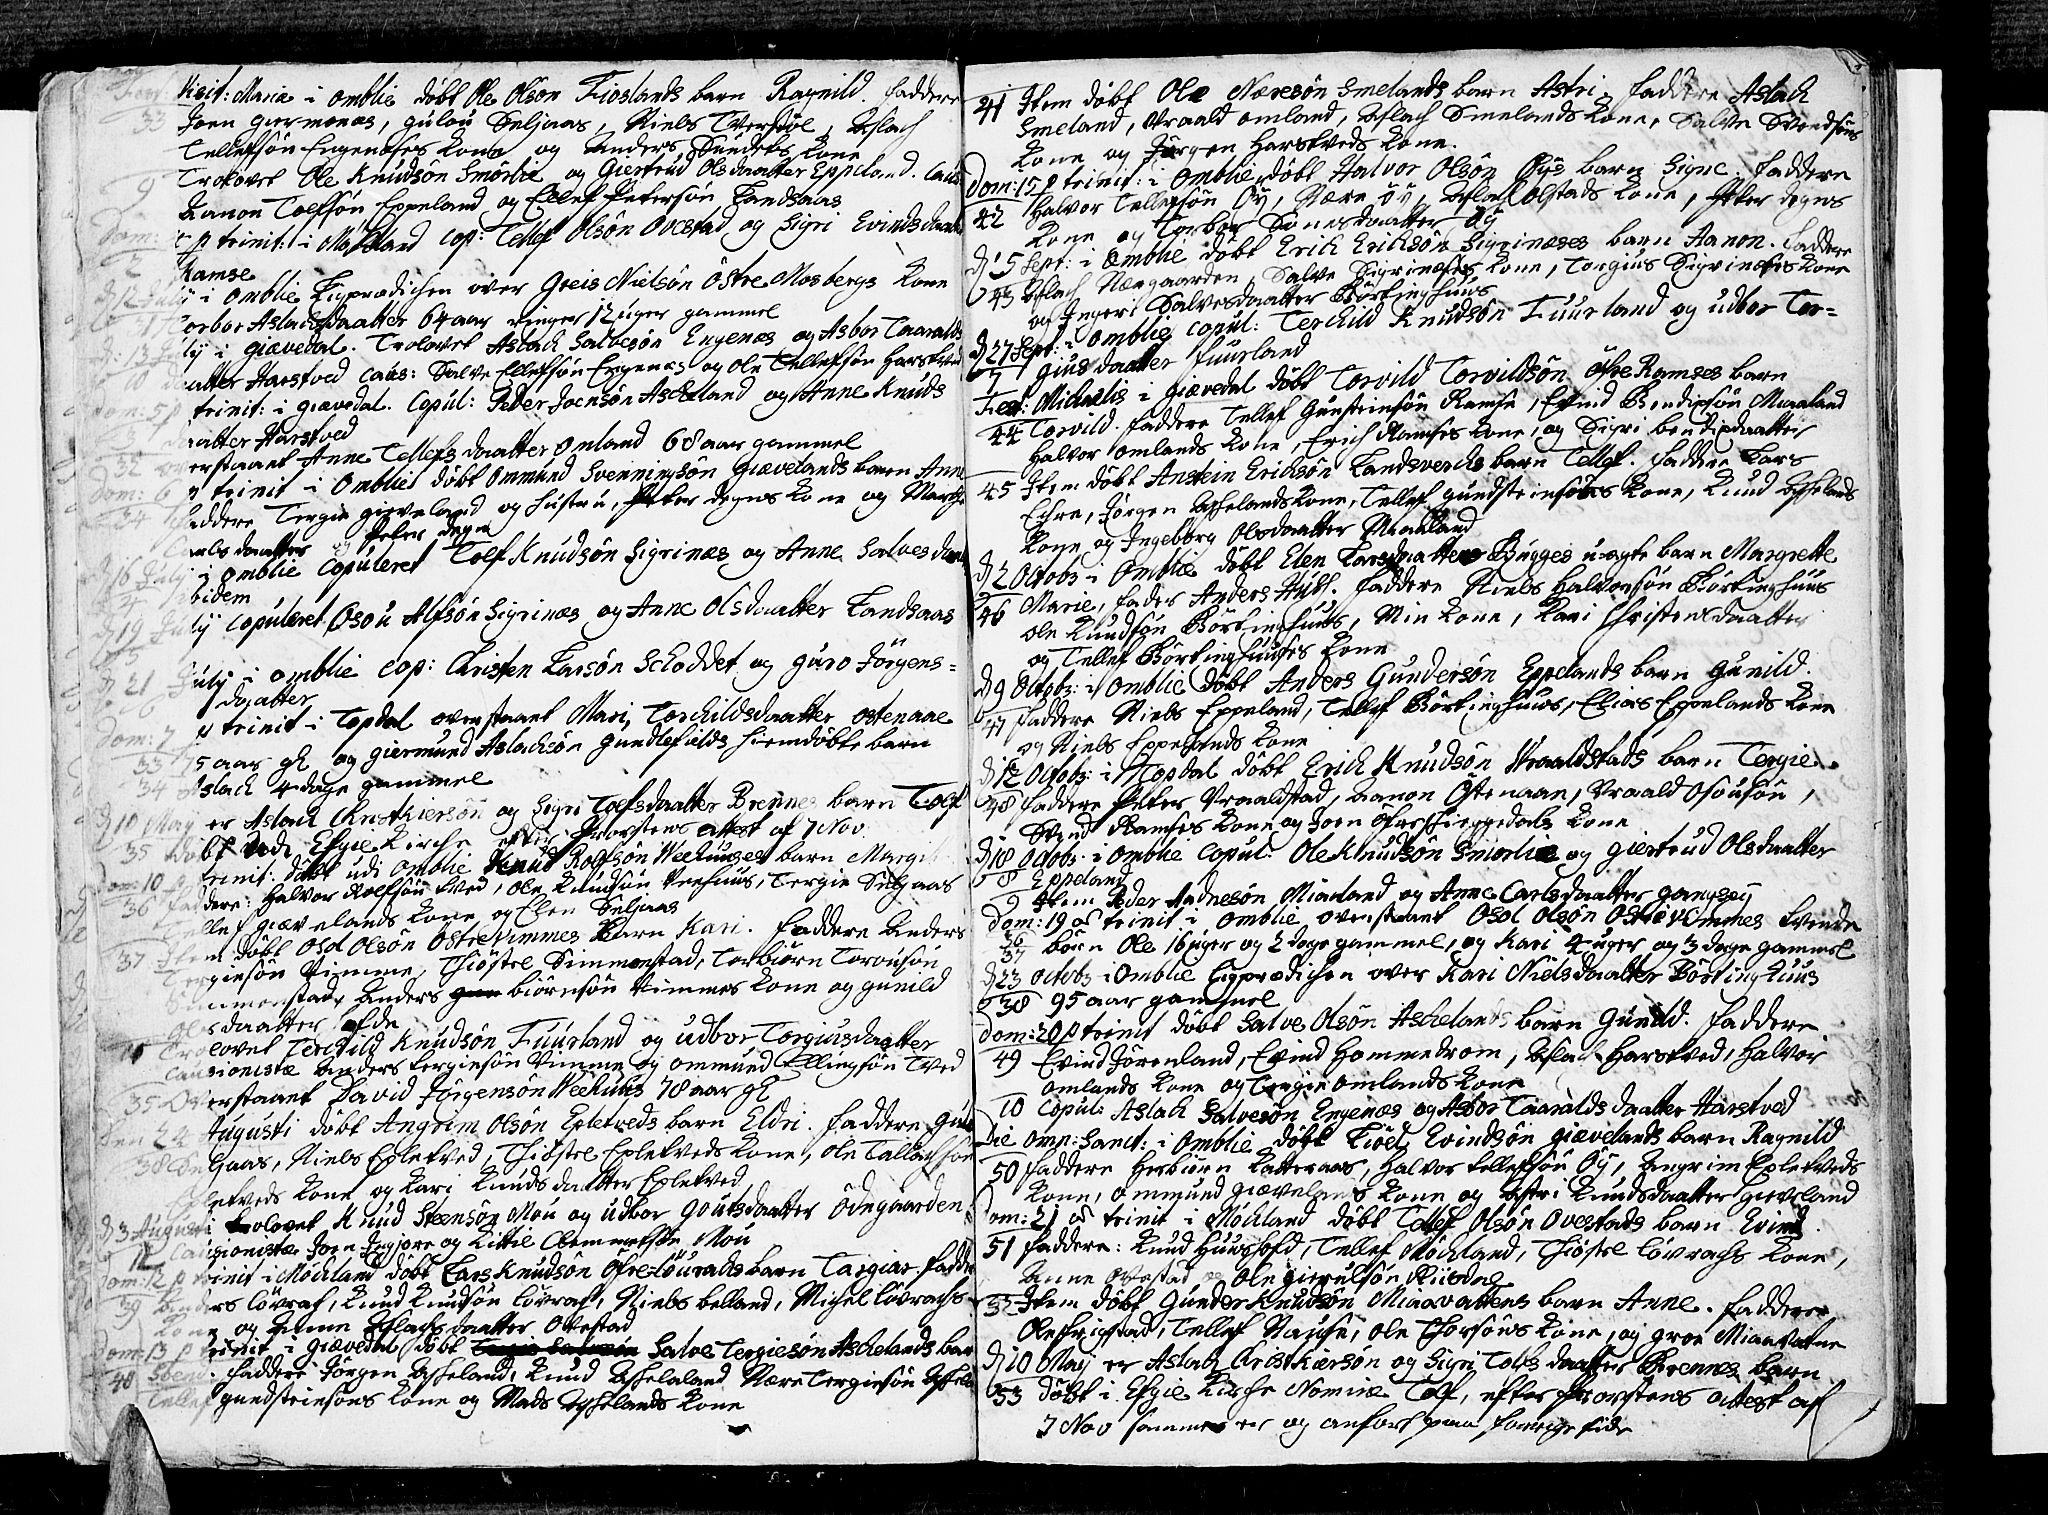 Fest: Visit: Mariæ i Omblie døbt Ole Olsøn Fioslands barn Ragnild. faddere
33 Joen guermonæs, guløu Seljaas, Niels Tversdøl, Aslach
Tellefsøn Engenæses Kone og Anders Kone
9 Troloved Ole Knudsøn Smørlie og Giertrud Olsdaatter Eppeland. Caus:
Aanon Tolfsøn Eppeland og Ellef Petersøn Landsaas
Dom: p trinit: i Møckland cop: Tellef Olsøn Ovestad og Sigri Evindsdaatter
2 Ramse
d. 12 July i Omblie Ligprædichen over Greis Nielsøn Østre Mosbergs Kone
Torbor Aslachsdaatter 64 aar ringer 12 uger gammel
d: 13 July i Giævedal. Trolovet Aslach Salvesøn Engenæs og Asbor Taaralds
10 daatter Harstved caus: Salve Ellefsøn Engenæs og Ole Tellefsøn Harstved
Dom: 5 p trinit: i Giævedal. Copul: Peder Joensøn Ascheland og Anne Knuds
3 daatter Harstved
32 overstaaet Anne Tellefsdaatter Omland 68 aar gammel
Dom: 6 p trinit i Omblie døbt Ommund Svenningsøn Giævelands barn Anne
34 faddere Tergie giæveland og hustru, Peter degns Kone og Marthe
Carlsdaatter og Peter degn
d 16 July i Omblie Copuleret Tolf Knudsøn Sigrinæs og Anne Salvesdaatter
4 ibidem
d 19 July Copuleret Osou Alfsøn Sigrinæs og Anne Olsdaatter Landsaas
5
d 21 July i Omblie Cop: Christen Larsøn Schoddet og Guro Jørgens=
6 daatter
Dom: 7 p trinit i Topdal overstaaet Mari Torchildsdaatter Ostenaae
33 75 aar gl og Giermund Aslachsøn gundlefields hiemdøbte barn
34 Aslach 4 dage gammel
d 10 May er Aslach Christkiersøn og Sigri Tolfsdaatter Brennes barn Tolf
35 døbt udi Efgie Kirche efter Provstens attest af 7 Nov.
Dom: 10 p trinit: døbt udi Omblie Knud Rolfsøn Veehuuses barn Margit
36 faddere: Halvor Rolfsøn Tved, Ole Knudsøn Veehuus, Tergie Seljaas
Tellef giævelands Kone og Elen Seljaas
37 Item døbt Osol Olsøn Østre Vimmes barn Kari. faddere Anders
Tergiesøn Vimme, Thiøstel Simmonstad, Torbiørn Torousøn
Simmonstad, Anders biørnsøn Vimmes Kone og gunild
Olsdaatter
11 Trolovet Terchild Knudsøn Fuurland og udbor Torgiusdaatter
Cautionistæ Anders tergiesøn Vimme og Ommund Ellingsøn Tved
35 Overstaaet David Jørgensøn Veehuus 78 aar gl
den 24 Augusti døbt Angrim Olsøn Epletveds barn Eldri. faddere
38 Seljaas, Niels Epletved, Thiøstel Epletveds Kone, Ole Tallachsøn
Epletveds Kone og Kari Knudsdaatter Epletved
d 3 Augusti trolovet Knud Steensøn Mou og Udbor Goutsdaatter Ødegaarden
12 Cautionistæ Joen Ingjore og Kittil Clemmetsøn Mou
Dom: 12 p trinit i Møckland døbt Lars Knudsøn Øfre Løvrachs barn Targiær. fadde
39 Anders Løvrach, Knud Knudsøn Løvrach, Niels belland, Michel Løvrachs
Kone og Anne Aslachsdaatter Ovestad
Dom: 13 p trinit i Giævedal døbt Salve Tergiesøn Aschelands barn
40 Svend. faddere Jørgen Ascheland, Knud Ascheland Nære Tergiesøn
Tellef gundsteinsøns Kone og Mads Aschelands Kone
41 Item døbt Ole Næresøn Smelands barn Astri. faddere Aslach
Smeland, Vraald omland, Aslach Smelands Kone, Salve Svendsøns
Kone og Jørgen Harstveds Kone.
Dom: 15 p trinit: i Omblie døbt Halvor Olsøn Øys barn Signe. faddere
42 Halvor Tellefsøn Øy, Nære Øy, Aslach Olstads Kone, Peter degns
Kone og Torbor Sonesdaatter Øy
d 15 Sept: i Omblie døbt Erich Erichsøn Sigrinæses barn Aanon. faddere
43 Aslach Næsgaarden, Salve Sigrinæses Kone, Torgius Sigrinæses Kone
og Ingeri Salvesdaatter Børtinghuus
d 27 Sept: i Omblie Copul: Terchild Knudsøn Fuurland og udbor Tor=
7 giusdaatter fuurland
Fest: Michaelis i Giævedal døbt Torvild Torvildsøn Øfre Ramses barn
44 Torvild. faddere Tellef Gunsteinsøn Ramse, Evind Bendixsøn Miaaland
Halvor Omlands Kone, Erich Ramses Kone, og Sigri bendixdaatter
45 Item døbt Anstein Erichsøn Landsverchs barn Tellef. faddere Lars
Echre, Jørgen Aschelands Kone, Tellef gundsteinsøns Kone, Knud Aschelands
Kone og Ingeborg Olsdaatter Miaaland
d 2 Octobr i Omblie døbt Elen Larsdaatter Bugges uægte barn Margrette
46 Marie, fader Anders Hust. faddere Niels Halvorsøn Børtinghuus
Ole Knudsøn Børtinghuus, Min Kone, Kari Christensdaatter
og Tellef Børtinghuuses Kone
d 9 Octobr: i Omblie døbt Anders Gundersøn Eppelands barn Gunild.
47 faddere Niels Eppeland, Tellef Børtinghuus, Elias Eppelands Kone
og Niels Eppelands Kone
d 12 Octobr: i Topdal døbt Erich Knudsøn Vraaldstads barn Tergie.
48 faddere Peter Vraaldstad, Aanon Østenaae, Vraald Osousøn,
Svend Ramses Kone og Joen Øfre Kone
d 18 Octobr: i Omblie Copul: Ole Knudsøn Smørlie og Giertrud Olsdaatter
8 Eppeland
9 Item Peder Aadnesøn Miaaland og Anne Carlsdaatter
Dom: 19 p trinit i Omblie overstaaet Osol Olsøn Østre Vimmes tvende
36 37 børn Ole 16 uger og 2 dage gammel, og Kari 4 uger og 3 dage gammel
d 23 Octobr i Omblie Ligprædichen over Kari Nielsdaatter Børtinghuus
38 95 aar gammel
Dom: 20 p trinit døbt Salve Olsøn Aschelands barn Gunild. faddere
49 Evind Jørenland, Evind Hommedrom, Aslach Harstved, Halvor
Omlands Kone og Tergie omlands Kone
10 Copul: Aslach Salvesøn Engenæs og Asbor Taaralds daatter Harstved
Die omn: Sanct: i Omblie døbt Kiøel Evindsøn giævelands barn Ragnild
50 faddere Herbiørn Katteraas, Halvor tellefsøn Øy, Angrim Epletveds
Kone, Ommund giævelands Kone og Astri Knudsdaatter giæveland
Dom: 21 p trinit i Møckland døbt Tellef Olsøn Ovestads barn Evind.
51 faddere: Knud Huusfold, Tellef Møckland, Thiøstel Løvrachs Kone,
Anne Ovestad og Ole gierulsøn Riisdal
52 Item døbt Gunder Knudsøn Miaavattens barn Anne. faddere
Ole frigstad, Tellef Ole Thorsøns Kone, og groe Miaavatne
d 10 May er Aslach Christkiersøn og Sigri Tolfsdaatter Brennes barn
53 døbt i Efgie Kirche Nomine Tolf, efter Provstens attest af
7 Nov samme er og anført paa forrige side